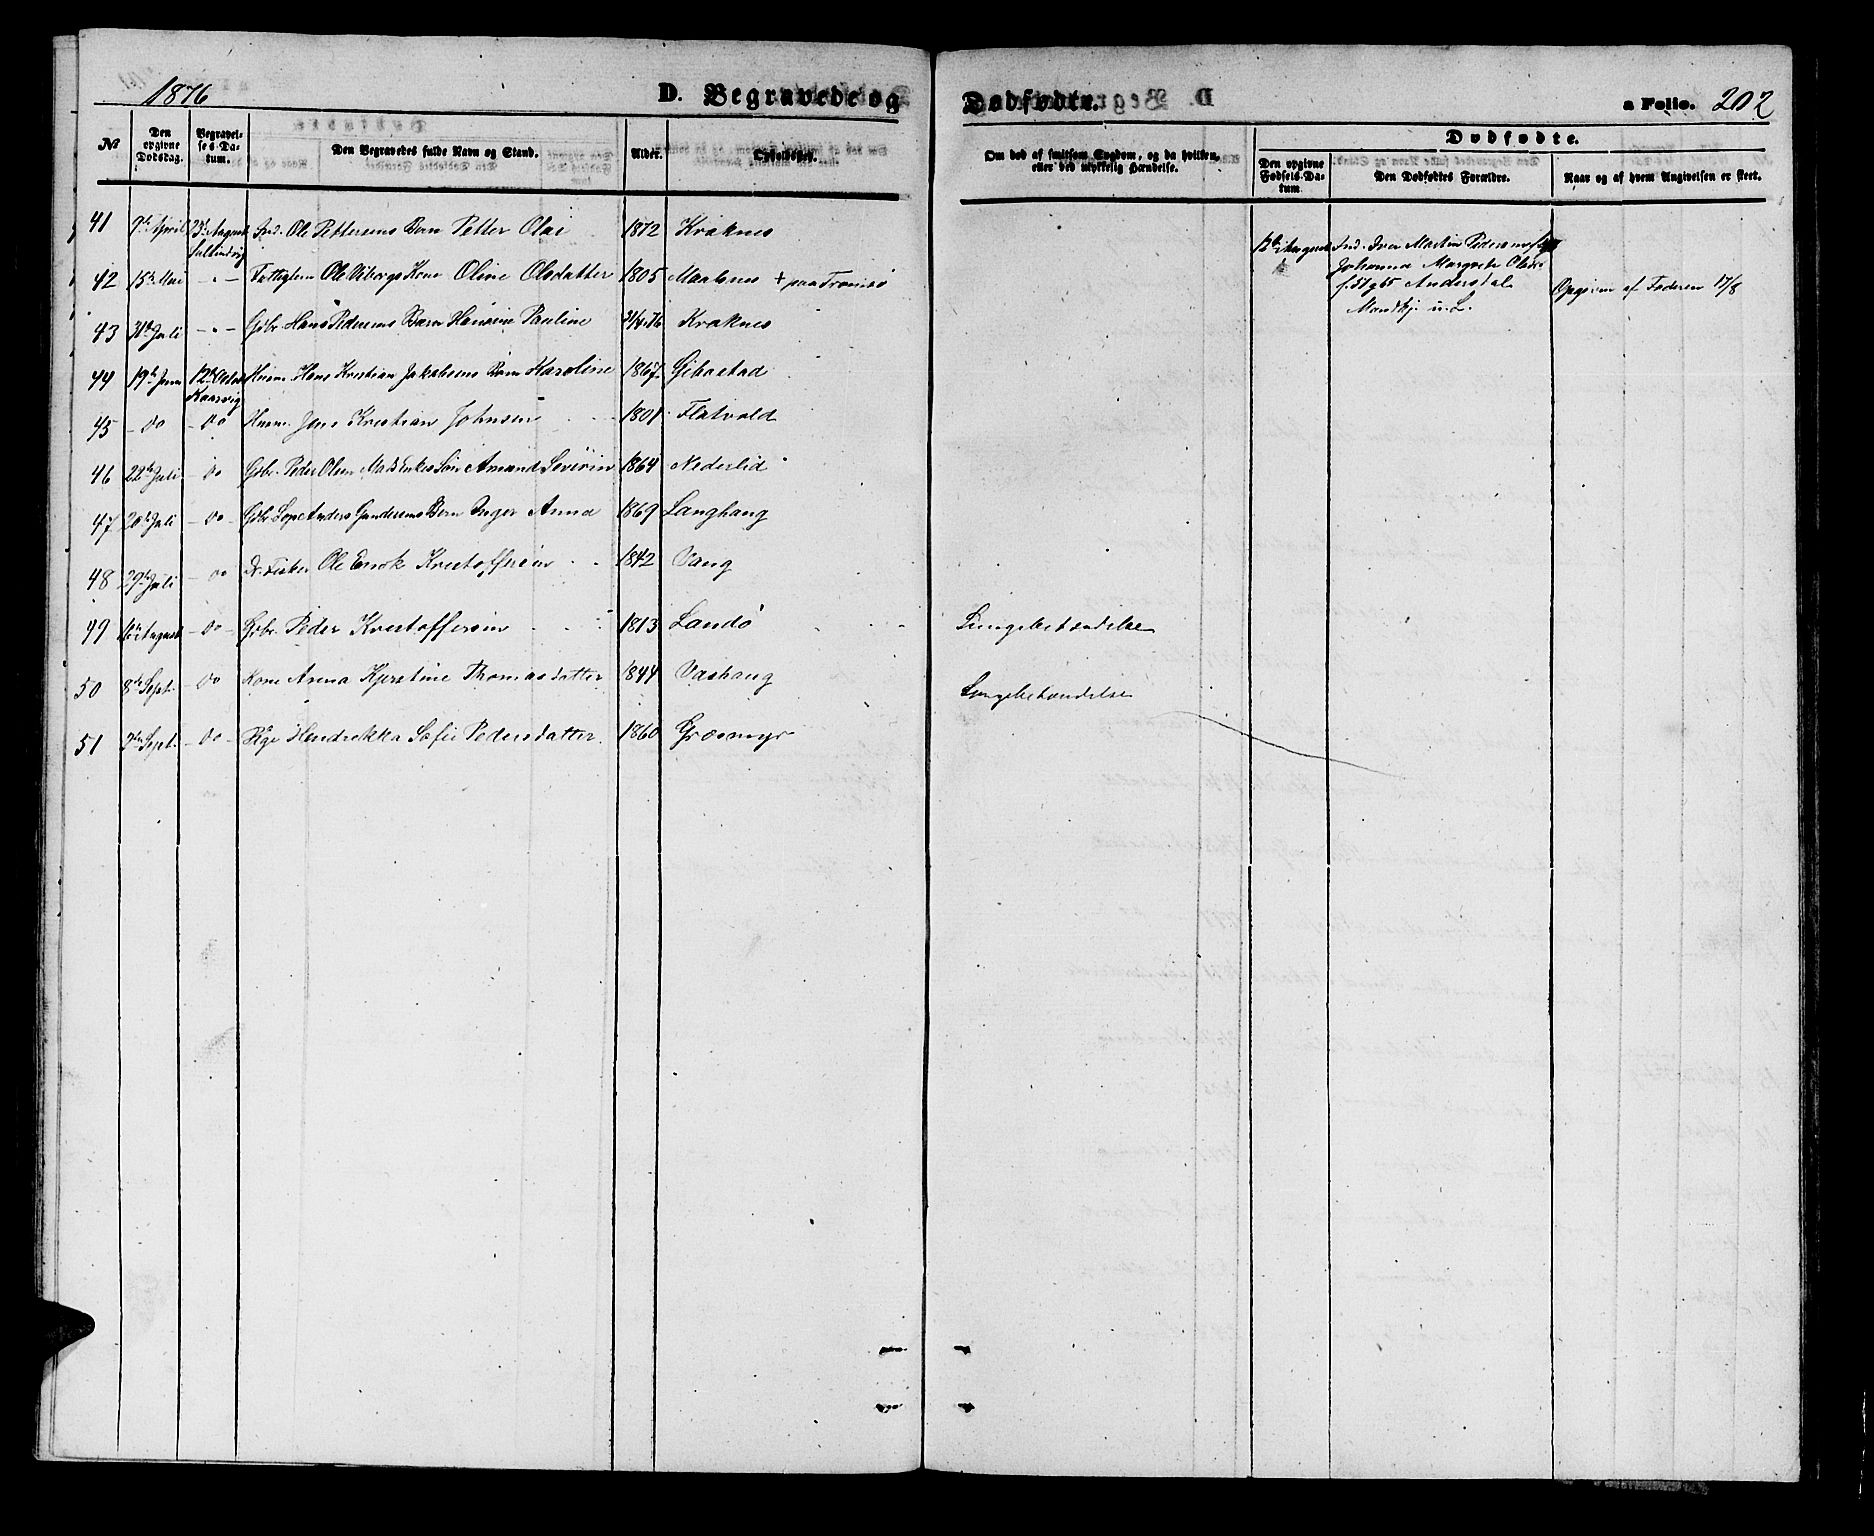 1876 D. Begravede og Dødfødte. a Folio. 202
№ Den opgivne Dødsdag. Begravelses-Datum. Den Begravedes fulde Navn og Stand. Alder. Opholdsted. Om død af smitsom Sygdom, og da hvilken, eller ved ulykkelig Hændelse. Dødfødte. Den opgivne Fødsels-Datum. Den Dødfødtes Forældre. Naar og af hvem Angivelsen er skeet.
41 7de April 13de August Ind. Ole Pettersens Barn Petter Olai 1872 Kraknes
42 15de Mai -"- Fattiglem Ole Vibergs Kone Oline Olsdatter 1805 Maalsnes + paa Tromsø
43 31te Juli -"- Gbr. Hans Pedersens Barn Hansine Pauline 21/4.76 Kraknes
44 19de Juni 12te Octbr Husm. Hans Kristian Jakobsens Barn Karoline 1867 Gibostad
45 - Do - Do Husm. Jens Kristian Johnsen 1801 Flatvold
46 22de Juli Do Gbr. Peder Olsen Søn Amand Severin 1864 Nederlid
47 20de Juli - Do - Gbr. Anders Gundersens Barn Inger Anna 1869 Langhaug
48 29de Juli - Do Fisker Ole Enok Kristoffersen 1842 Vang
49 August - Do - Gbr. Peder Kristoffersen 1813 Landø Lungebetændelse
50 8de Sept. - Do Kone Anna Kjerstine Thomasdatter 1844 Vashaug Lungebetændelse
51 Sept. - Do - Pige Hendrekka Sofie Pedersdatter 1860 Græsmyr
12te August Ind. Iver Martin Pedersen
Johanna Margrete Olsdr
Andersdal
Mandkj. u. L.
Opgiven af Faderen 17/8